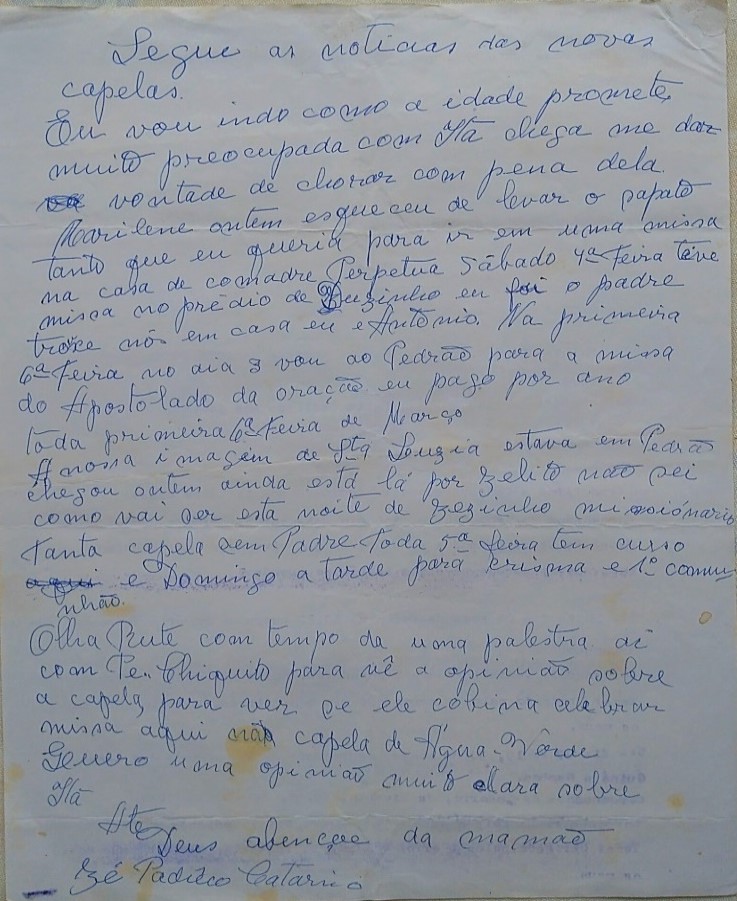 Segue as noticias das novas
capelas.
Eu vou indo como a idade promete,
muito preocupada com Itã chega me dar
vontade de chorar com pena dela.
Marilene ontem esqueceu de levar o sapato
tanto que eu queria para ir em uma missa
na casa de comadre Perpetua Sábado 4ª feira teve
missa no prédio de Duzinho eu foi o padre
troxe nós em casa eu e Antônio. Na primeira
6ª feira no dia 3 vou ao Pedrão para a missa
do Apostolado da oração eu pago por ano
toda primeira 6ª Feira de Março
A nossa imagem de Sta Luzia estava em Pedrão
chegou ontem ainda está lá por Zelito não sei
como vai ser esta noite de Zezinho missionário
tanta capela sem Padre toda 5ª feira tem curso
aqui e Domingo a tarde para crisma e 1º comu-
nhão.
Olha Rute com tempo da uma palestra ai
com Pe. Chiquito para vê a opinião sobre
a capela, para ver se ele cobina celebrar
missa aqui na capela de Água-Verde
uma opinião muito clara sobre
Itã
Até
Deus abençoe da mamão
Zé Catarino